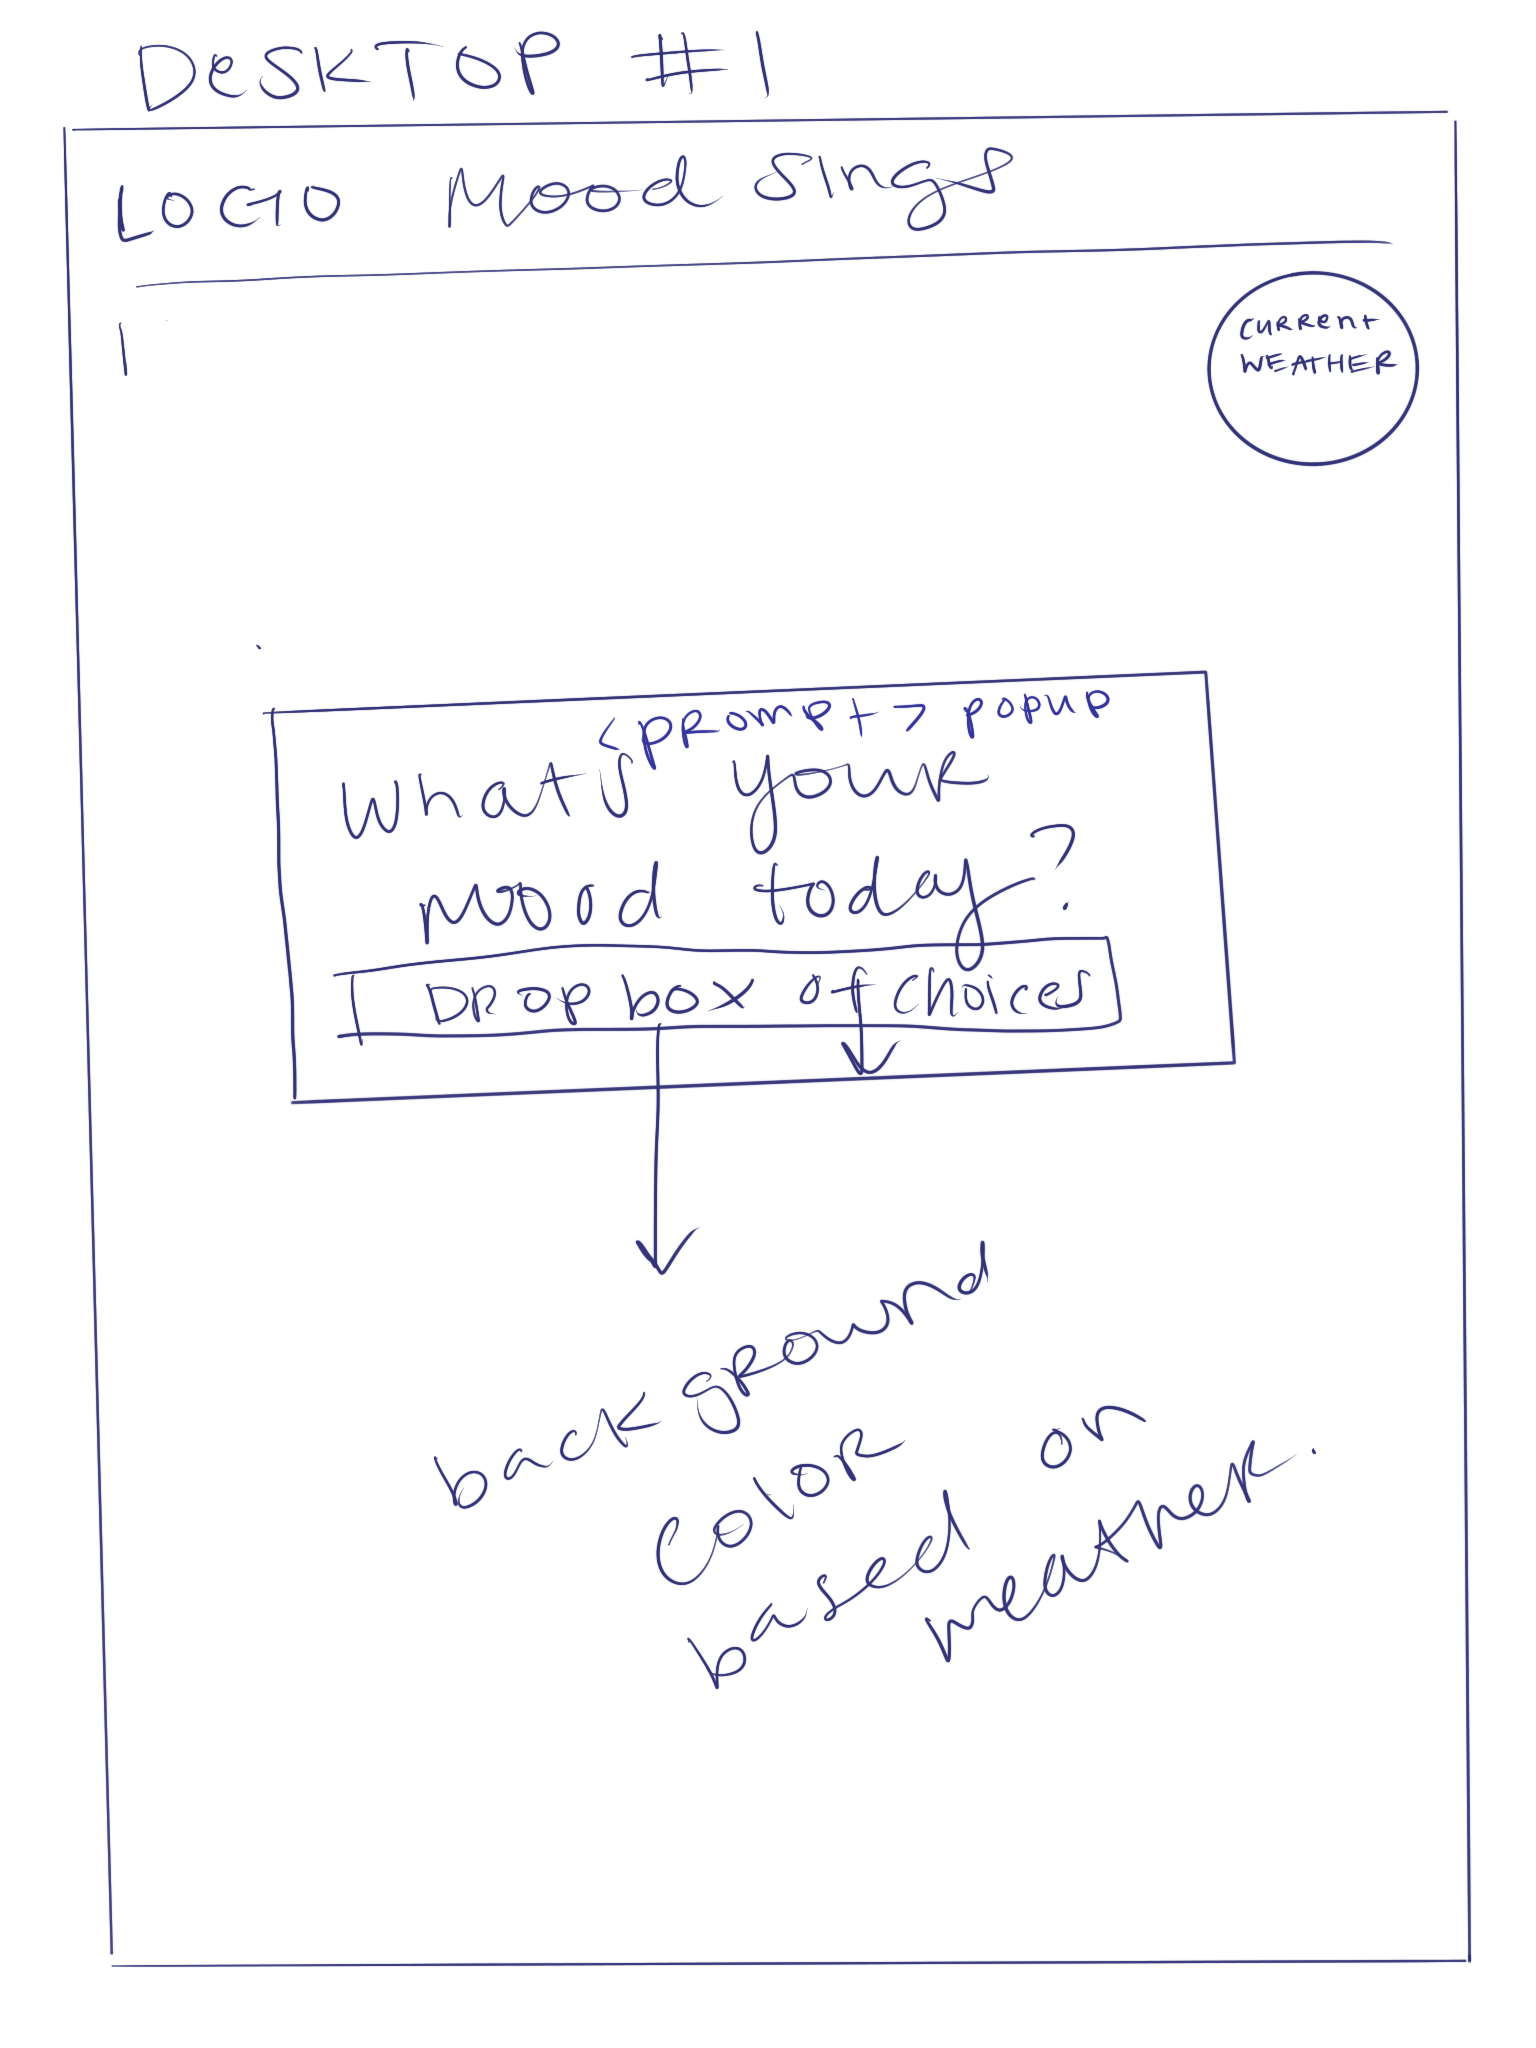 DesKTOP #1
LOGO Mood Sings
CURRent
WEATHER
<PROmpt> popup
Whats youR
mood today?
DROp box of choices
back gRound
ColoR
based on
weatheR.